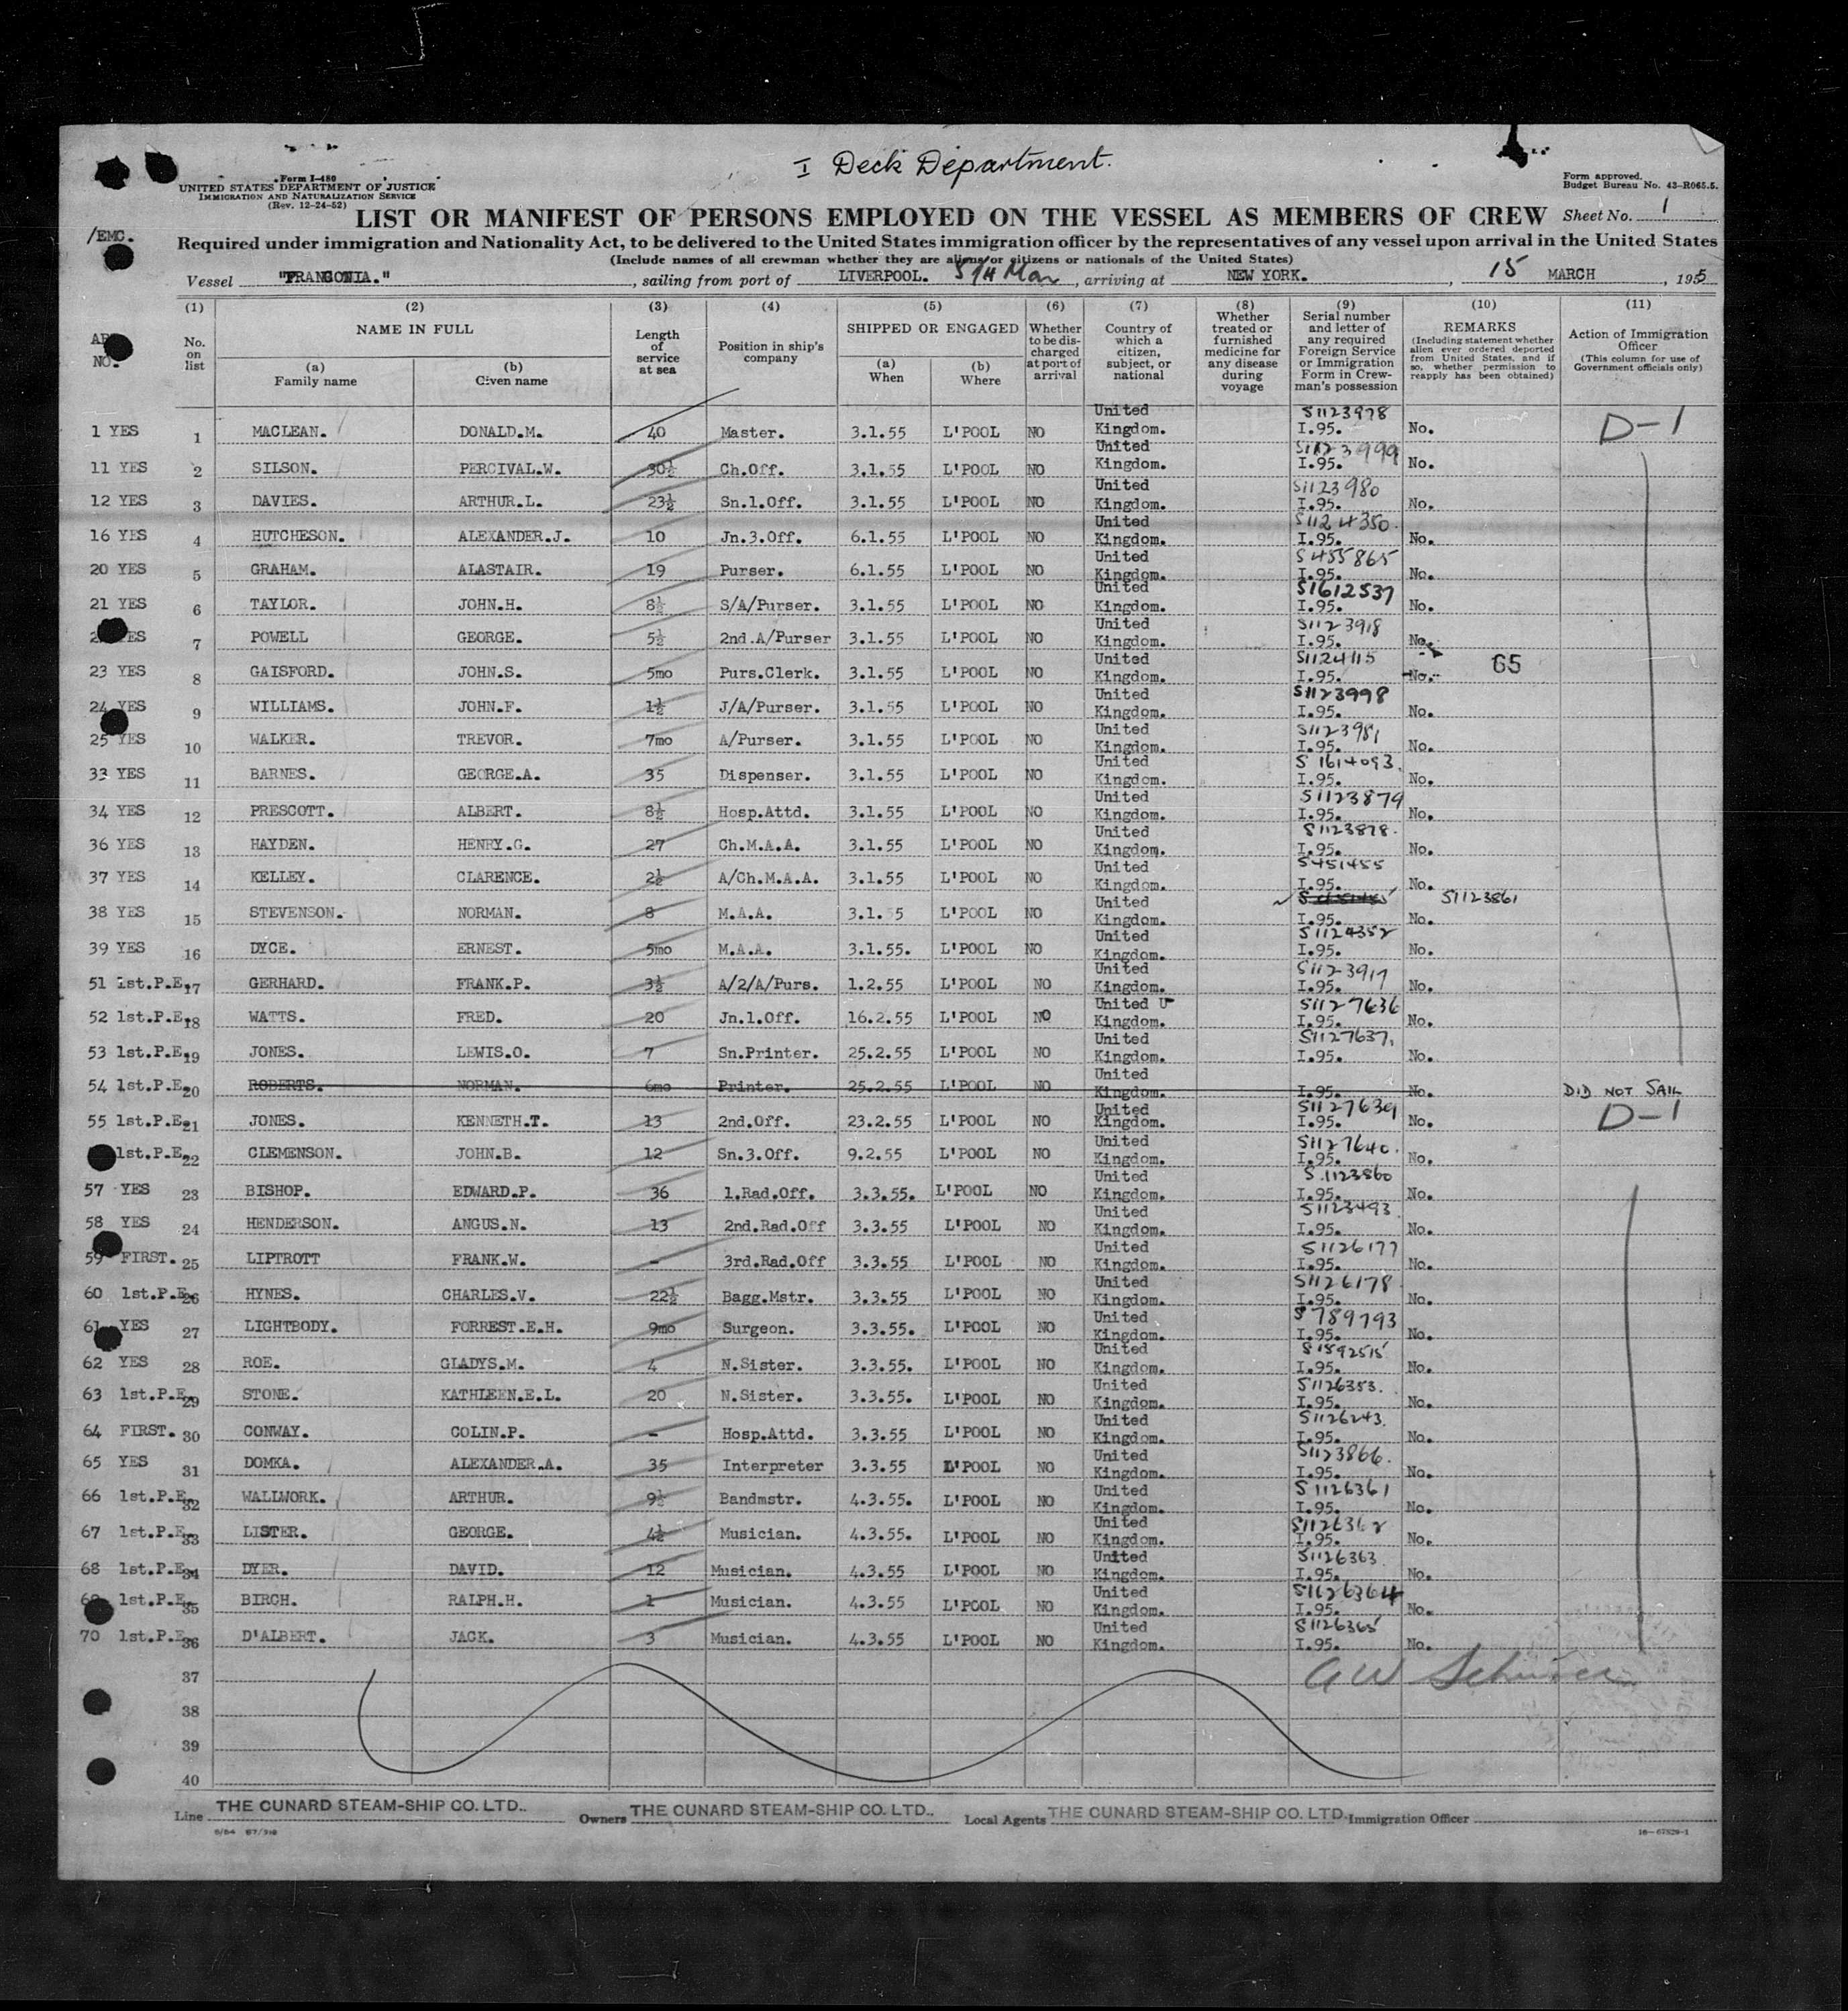 I Deck Department.
Form I-480
UNITED STATES DEPARTMENT OF JUSTICE
IMMIGRATION AND NATURALIZATION SERVICE
(Rev. 12-24-52)
Form approved.
Budget Bureau No. 43-R065.5.
LIST OR MANIFEST OF PERSONS EMPLOYED ON THE VESSEL AS MEMBERS OF CREW Sheet No. 1
/EMC.
Required under immigration and Nationality Act, to be delivered to the United States immigration officer by the representatives of any vessel upon arrival in the United States
(Include names of all crewman whether they are aliens or citizens or nationals of the United States)
Vessel "FRANCONIA.", sailing from port of LIVERPOOL. 5TH Mar, arriving at NEW YORK., 15 MARCH, 1955
(1) (2) (3) (4) (5) (6) (7) (8) (9) (10) (11)
No. on list
NAME IN FULL
(a) Family name
(b) Given name
Length of service at sea
Position in ship's company
SHIPPED OR ENGAGED
(a) When
(b) Where
Whether to be discharged at port of arrival
Country of which a citizen, subject, or national
Whether treated or furnished medicine for any disease during voyage
Serial number and letter of any required Foreign Service or Immigration Form in Crewman's possession
REMARKS
(Including statement whether alien ever ordered deported from United States, and if so, whether permission to reapply has been obtained)
Action of Immigration Officer
(This column for use of Government officials only)
NO.
1 YES 1 MACLEAN. DONALD.M. 40 Master. 3.1.55 L'POOL NO United Kingdom. S1123978 I.95. No. D-1
11 YES 2 SILSON. PERCIVAL.W. 30½ Ch.Off. 3.1.55 L'POOL NO United Kingdom. S1123999 I.95. No.
12 YES 3 DAVIES. ARTHUR.L. 23½ Sn.1.Off. 3.1.55 L'POOL NO United Kingdom. S1123980 I.95. No.
16 YES 4 HUTCHESON. ALEXANDER.J. 10 Jn.3.Off. 6.1.55 L'POOL NO United Kingdom. S1124350. I.95. No.
20 YES 5 GRAHAM. ALASTAIR. 19 Purser. 6.1.55 L'POOL NO United Kingdom. S455865 I.95. No.
21 YES 6 TAYLOR. JOHN.H. 8½ S/A/Purser. 3.1.55 L'POOL NO United Kingdom. S1612537 I.95. No.
YES 7 POWELL GEORGE. 5½ 2nd.A/Purser 3.1.55 L'POOL NO United Kingdom. S1123918 I.95. No.
23 YES 8 GAISFORD. JOHN.S. 5mo Purs.Clerk. 3.1.55 L'POOL NO United Kingdom. S1124115 I.95. No. 65
24 YES 9 WILLIAMS. JOHN.F. 1½ J/A/Purser. 3.1.55 L'POOL NO United Kingdom. S1123998 I.95. No.
25 YES 10 WALKER. TREVOR. 7mo A/Purser. 3.1.55 L'POOL NO United Kingdom. S1123981 I.95. No.
33 YES 11 BARNES. GEORGE.A. 35 Dispenser. 3.1.55 L'POOL NO United Kingdom. S1614093. I.95. No.
34 YES 12 PRESCOTT. ALBERT. 8½ Hosp.Attd. 3.1.55 L'POOL NO United Kingdom. S1123879 I.95. No.
36 YES 13 HAYDEN. HENRY.G. 27 Ch.M.A.A. 3.1.55 L'POOL NO United Kingdom. S1123878. I.95. No.
37 YES 14 KELLEY. CLARENCE. 2½ A/Ch.M.A.A. 3.1.55 L'POOL NO United Kingdom. S451455 I.95. No.
38 YES 15 STEVENSON. NORMAN. 8 M.A.A. 3.1.55 L'POOL NO United Kingdom. I.95. No. S1123861
39 YES 16 DYCE. ERNEST. 5mo M.A.A. 3.1.55. L'POOL NO United Kingdom. S1124352 I.95. No.
51 1st.P.E. 17 GERHARD. FRANK.P. 3½ A/2/A/Purs. 1.2.55 L'POOL NO United Kingdom. S1123917 I.95. No.
52 1st.P.E. 18 WATTS. FRED. 20 Jn.1.Off. 16.2.55 L'POOL NO United Kingdom. S1127636 I.95. No.
53 1st.P.E. 19 JONES. LEWIS.O. 7 Sn.Printer. 25.2.55 L'POOL NO United Kingdom. S1127637. I.95. No.
54 1st.P.E. 20 ROBERTS. NORMAN. 6mo Printer. 25.2.55 L'POOL NO United Kingdom. I.95. No. DID NOT SAIL
55 1st.P.E. 21 JONES. KENNETH.T. 13 2nd.Off. 23.2.55 L'POOL NO United Kingdom. S1127639 I.95. No. D-1
1st.P.E. 22 CLEMENSON. JOHN.B. 12 Sn.3.Off. 9.2.55 L'POOL NO United Kingdom. S1127640. I.95. No.
57 YES 23 BISHOP. EDWARD.P. 36 1.Rad.Off. 3.3.55. L'POOL NO United Kingdom. S.1123860 I.95. No.
58 YES 24 HENDERSON. ANGUS.N. 13 2nd.Rad.Off 3.3.55 L'POOL NO United Kingdom. S1123493. I.95. No.
59 FIRST. 25 LIPTROTT FRANK.W. - 3rd.Rad.Off 3.3.55 L'POOL NO United Kingdom. S1126177 I.95. No.
60 1st.P.E. 26 HYNES. CHARLES.V. 22½ Bagg.Mstr. 3.3.55 L'POOL NO United Kingdom. S1126178 I.95. No.
61 YES 27 LIGHTBODY. FORREST.E.H. 9mo Surgeon. 3.3.55. L'POOL NO United Kingdom. S789793 I.95. No.
62 YES 28 ROE. GLADYS.M. 4 N.Sister. 3.3.55. L'POOL NO United Kingdom. S1592515 I.95. No.
63 1st.P.E. 29 STONE. KATHLEEN.E.L. 20 N.Sister. 3.3.55. L'POOL NO United Kingdom. S1126353. I.95. No.
64 FIRST. 30 CONWAY. COLIN.P. - Hosp.Attd. 3.3.55 L'POOL NO United Kingdom. S1126243. I.95. No.
65 YES 31 DOMKA. ALEXANDER.A. 35 Interpreter 3.3.55 L'POOL NO United Kingdom. S1123866. I.95. No.
66 1st.P.E. 32 WALLWORK. ARTHUR. 9½ Bandmstr. 4.3.55. L'POOL NO United Kingdom. S1126361 I.95. No.
67 1st.P.E. 33 LISTER. GEORGE. 4½ Musician. 4.3.55. L'POOL NO United Kingdom. S1126362 I.95. No.
68 1st.P.E. 34 DYER. DAVID. 12 Musician. 4.3.55 L'POOL NO United Kingdom. S1126363. I.95. No.
69 1st.P.E. 35 BIRCH. RALPH.H. 1 Musician. 4.3.55 L'POOL NO United Kingdom. S1126364 I.95. No.
70 1st.P.E. 36 D'ALBERT. JACK. 3 Musician. 4.3.55 L'POOL NO United Kingdom. S1126365 I.95. No.
37
38
39
40
Line THE CUNARD STEAM-SHIP CO. LTD.. Owners THE CUNARD STEAM-SHIP CO. LTD.. Local Agents THE CUNARD STEAM-SHIP CO. LTD. Immigration Officer
16-67529-1